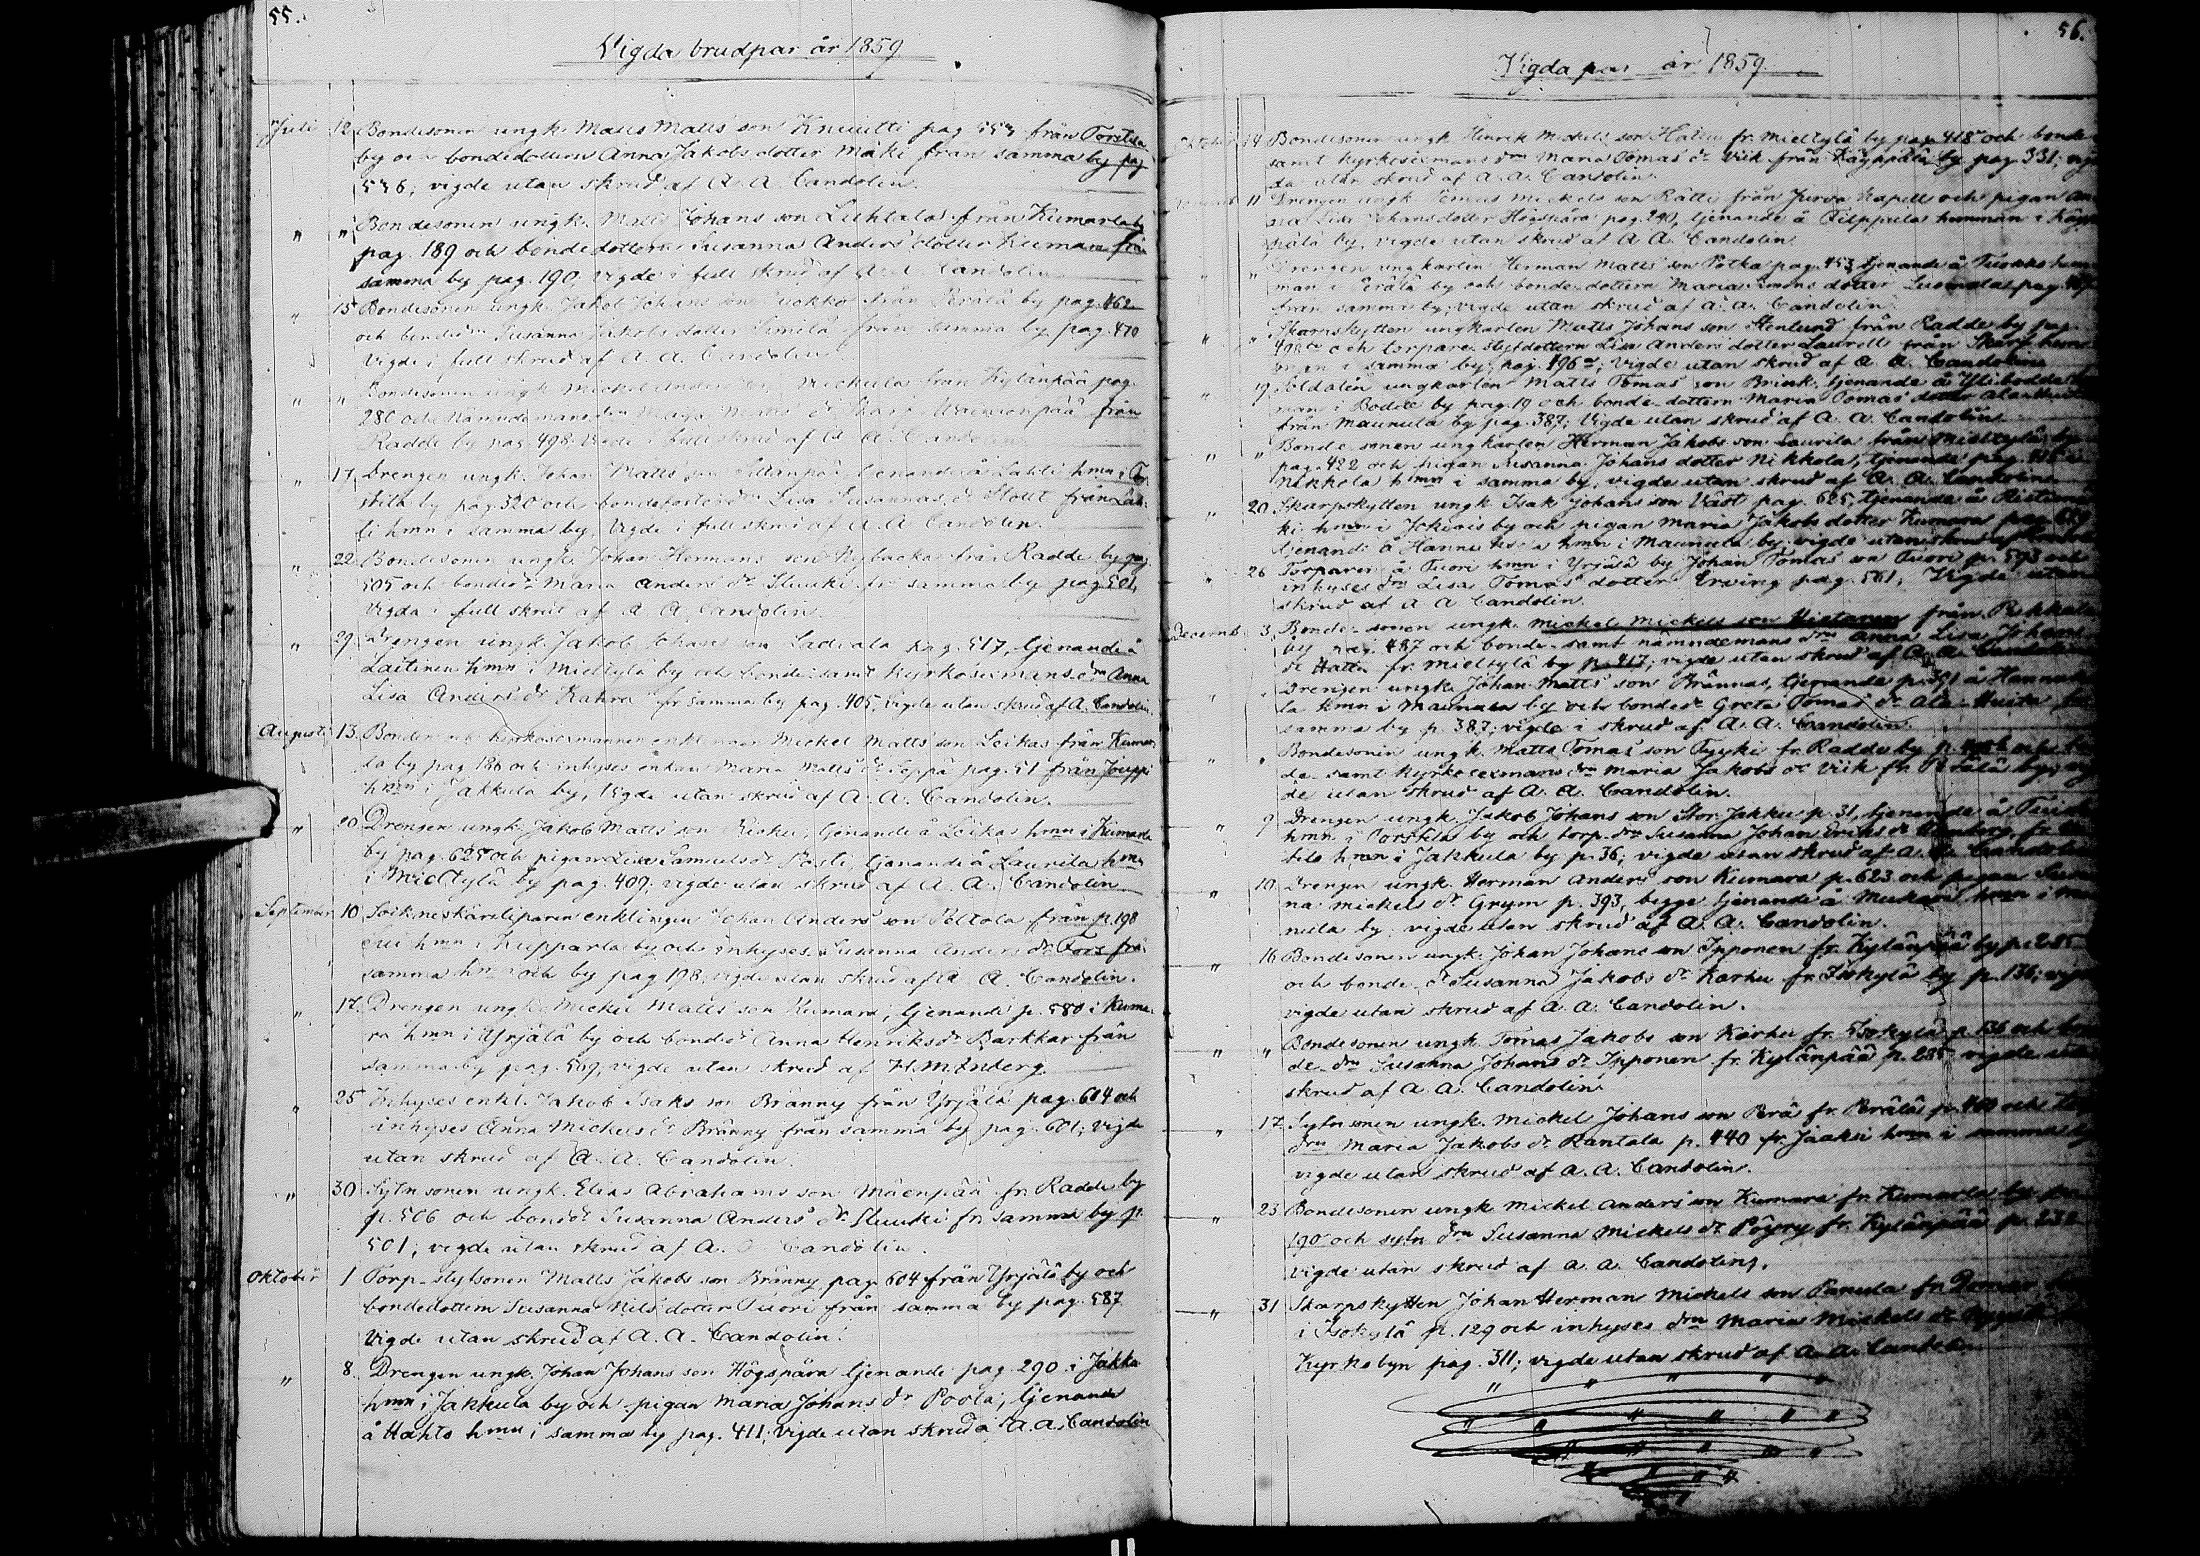 55.
Vigda brudpar år 1859
Juli 12 Bondesonen ungk. Matts Matts son Knuutti pag 553 från Torstila
by och bondedottern Anna Jakobs dotter Mäki från samma by pag
536, vigde utan skrud af A. A. Candolin.
" " Bondesonen ungk. Matts Johans son Luhtala från Kumarla by
pag. 189 och bondedottern Susanna Anders dotter Kumara från
samma by pag. 190, vigde i full skrud af A. A. Candolin
" 15 Bondesonen ungk. Jakob Johans son Luokko från Perälä by pag. 462
och bondedrn Susanna Jakobs dotter Similä från samma by pag. 470
Vigde i full skrud af A. A. Candolin
" " Bondesonen ungk. Mickel Anders son Mickula från Kylänpää pag.
280 och Nämndemans drn Maja Matts dr från
Radde by pag. 498. Vigde i full skrud af A. A. Candolin
" 17 Drengen ungk. Johan Matts son tjenande å Lahti hmn i Tor
stila by pag. 320 och bondefosterdrn Lisa Susannas dr Stolt från Lah-
ti hmn i samma by, Vigde i full skrud af A. A. Candolin.
" 22 Bondesonen ungk. Johan Hermans son Nybacka från Radde by pag
505 och bondedr Maria Anders dr Sluuki fr. samma by pag 501,
Vigda i full skrud af A. A. Candolin.
" 29 Drengen ungk. Jakob Johans son Ladvala pag. 517, tjenande å
Laitinen hmn i Mieltylä by och bonde samt Kyrkosexmans drn Anna
Lisa Anders dr Kahra fr samma by pag. 405, Vigde utan skrud af A. Candolin.
Augusti 13 Bonden och kyrkosexmannen enklingen Mickel Matts son Leikas från Kumar
la by pag 186 och inhyses enkan Maria Matts dr Seppä pag. 51 från Jouppi
hmn i Jakkula by, Vigde utan skrud af A. A. Candolin.
" 20 Drengen ungk. Jakob Matts son tjenande å Leikas hmn i Kumarla
by pag. 625 och pigan Lisa Samuels dr Posti, tjenande å Laurila hmn
i Mieltylä by pag. 407, vigde utan skrud af A. A. Candolin
September 10 Sockneskärsliparen enklingen Johan Anders son Peltola från p. 198
hmn i Kupparla by och inhyses Susanna Anders dr Fors från
samma hmn och by pag 198, vigde utan skrud af A. A. Candolin.
" 17 Drengen ungk. Mickel Matts son Kumara, tjenande p. 580 i Kuma-
ra hmn i Yrjälä by och bondedr Anna Henriks dr Barkkar från
samma by pag. 569, vigde utan skrud af H. M. Enberg.
" 25 Inhyses enkl. Jakob Isaks son Bränny från Yrjälä pag. 604 och
inhyses Anna Mickels dr Bränny från samma by pag. 601; vigde
utan skrud af A. A. Candolin.
" 30 Sytn sonen ungk. Elias Abrahams son Mäenpää fr. Radde by
p. 506 och bonddr Susanna Anders dr Sluuki fr. samma by p.
501; vigde utan skrud af A. A. Candolin.
Oktober 1 Torp-styfsonen Matts Jakobs son Bränny pag. 604 från Yrjälä by och
bondedottern Susanna Nils dotter Tuori från samma by pag. 587
Vigde utan skrud af A. A. Candolin.
" 8 Drengen ungk. Johan Johans son Högspära tjenande pag. 290 i Jakka
hmn i Jakkula by och pigan Maria Johans dr Poola, tjenande
å Hahto hmn i samma by pag. 411; Vigde utan skrud af A. A. Candolin
56.
Vigda par år 1859
14 Bondesonen ungk. Henrik Mickels son fr. Mieltylä by pag. 418 och bonde
samt kyrkosexmans drn Maria Tomas dr Viik från Käyhpälä by pag. 331; vig
da utan skrud af A. A. Candolin
11 Drengen ungk. Tomas Mickels son Rätti från Jurva kapell och pigan An
na Lisa Johansdotter Högspära pag. 290, tjenande å Pilppula hemman i Käyh
pälä by, vigde utan skrud af A. A. Candolin
" " Drengen ungkarlen Herman Matts son Potka pag. 453 tjenande å Luokko hem
man i Perälä by och bonde dottern Maria Simons dotter Luomala pag.
från samma by; vigde utan skrud af A. A. Candolin
" " Skarpskytten ungkarlen Matts Johans son Stenlund från Radde by pag.
498 och torpare styfdottern Lisa Anders dotter Laurell från Skarf hem
man i samma by, pag. 496; vigde utan skrud af A. A. Candolin
" 19 Soldaten ungkarlen Matts Tomas son Brink, tjenande å Yli bodde hem
man i Bodde by pag. 19 och bonde-dottern Maria Tomas dotter Ala-Huita
från Maunula by pag. 387; Vigde utan skrud af A. A. Candolin
" " Bonde sonen ungkarlen Herman Jakobs son Laurila från Mieltylä by
pag. 422 och pigan Susanna Johans dotter Nikkola, tjenande pag. å
Nikkola hmn i samma by, vigde utan skrud af A. A. Candolin
" 20 Skarpskytten ungk. Isak Johans son Väst pag. 625, tjenande å Ristimä
ki hmn i Jokipii by och pigan Maria Jakobs dotter Kumara pag.
tjenande å Hannuksela hmn i Maunula by, vigde utan skrud af Candolin
" 26 Torparen å Tuori hmn i Yrjälä by Johan Tomas son Tuori p. 593 och
inhyses drn Lisa Tomas dotter Erving pag. 561, Vigde utan
skrud af A. A. Candolin.
Decemb. 3 Bonde-sonen ungk. Mickel Mickels son Hietaranu från Pukkala
by pag. 487 och bonde-samt nämndemans drn Anna Lisa Johans
dr Hatta fr. Mieltylä by p. 417, vigde utan skrud af A. A. Candolin
" " Drengen ungk. Johan Matts son Brännas, tjenande p. 391 å Hannukse
la hmn i Maunula by och bondedr Greta Tomas dr Ala-Huita fr.
samma by p. 387; vigde i skrud af A. A. Candolin
" " Bondesonen ungk. Matts Tomas son Tyyki fr. Radde by p. och bon
de samt kyrkosexmans drn Maria Jakobs dr Viik fr. Perälä by; vig
de utan skrud af A. A. Candolin.
" 9 Drengen ungk. Jakob Johans son Stor-Jakku p. 31, tjenande å
hmn i Torstila by och torp. drn Susanna Johan Eriks dr fr.
tilo hmn i Jakkula by p. 36; vigde utan skrud af A. A. Candolin
" 10 Drengen ungk. Herman Anders son Kumara p. 623 och pigan Susan
na Mickels dr Grym p. 393, begge tjenande å hmn i Mau
nula by; vigde utan skrud af A. A. Candolin.
" 16 Bondesonen ungk. Johan Johans son Ipponen fr. Kylänpää by p. 285
och bonde-dr Susanna Jakobs dr Karhu fr. Isokylä by p. 136; vigde
vigde utan skrud af A. A. Candolin.
" " Bondesonen ungk. Tomas Jakobs son Karhu fr. Isokylä p. 136 och bon
de-drn Susanna Johans dr Ipponen fr. Kylänpää p. 285 vigde utan
skrud af A. A. Candolin.
" 17 Sytn sonen ungk. Mickel Johans son Perä fr. Perälä p. 460 och
drn Maria Jakobs dr Rantala p. 440 fr. Jaakki hmn i samma by
vigde utan skrud af A. A. Candolin.
" 23 Bondesonen ungk. Mickel Anders son Kumara fr. Kumarla by pag.
190 och sytn drn Susanna Mickels dr Pöyry fr. Kylänpää p. 232
vigde utan skrud af A. A. Candolin.
" 31 Skarpskytten Johan Herman Mickels son Panula fr. Domar hmn
i Isokylä p. 129 och inhyses drn Maria Mickels dr
Kyrkobyn pag. 311; vigde utan skrud af A. A. Candolin